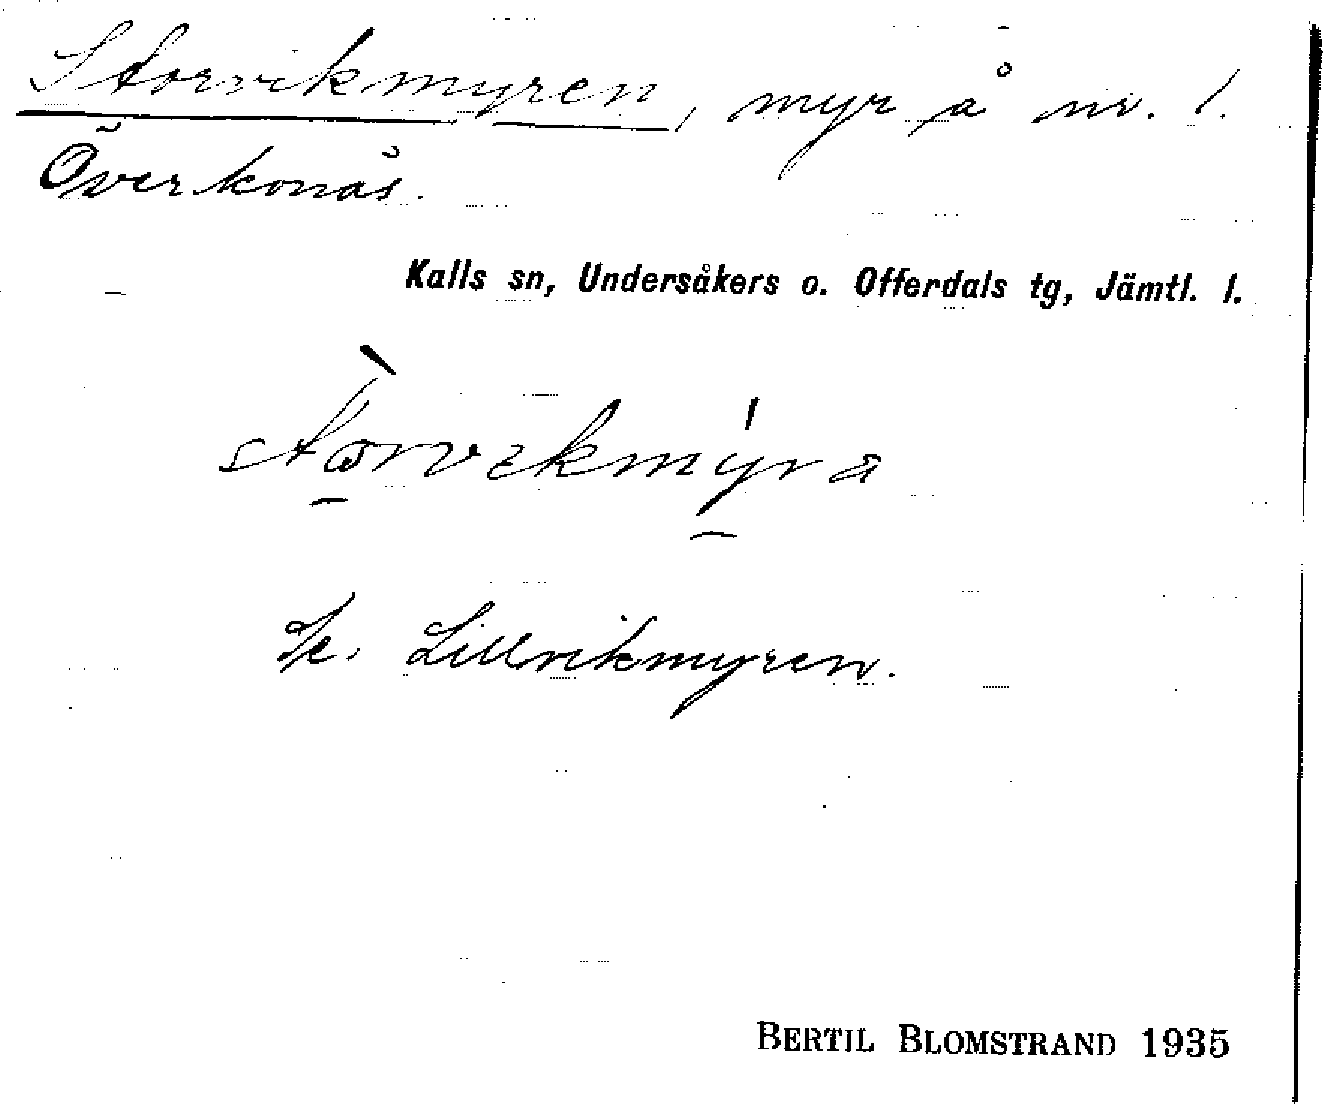 Storvikmyren, myr å nr. 1.
Överkonäs.
Kalls sn, Undersåkers o. Offerdals tg, Jämtl. l.
Lillvikmyren.
BERTIL BLOMSTRAND 1935